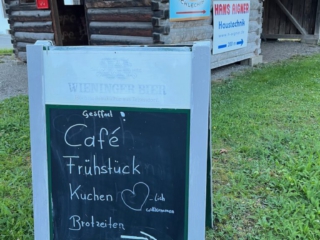 HANS AIGNER
Haustechnik
WIENINGER BIER
Geöffnet!
Café
Frühstück
Kuchen
Brotzeiten